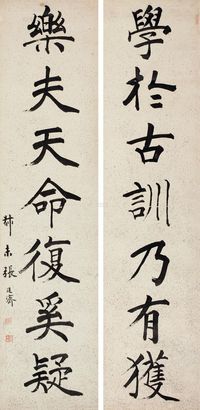 學於古訓乃有獲
樂夫天命復奚疑
叔未張廷濟